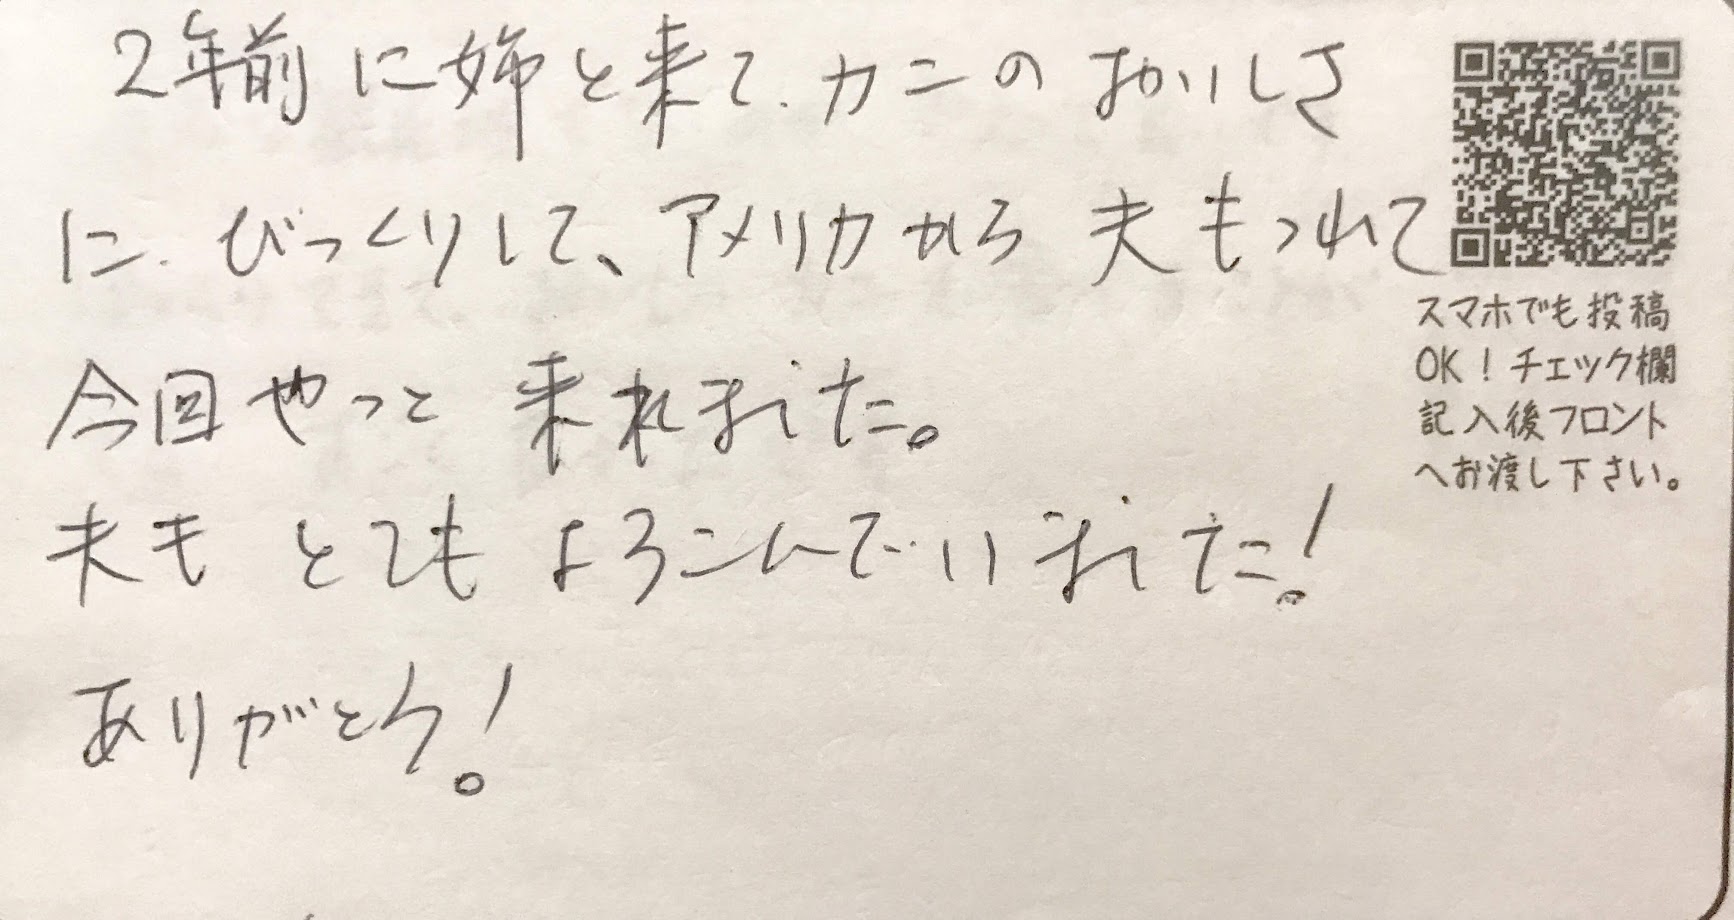 2年前に姉と来て、カニのおいしさ
に、びっくりして、アメリカから夫もつれて
今回やっと来れました。
夫もとてもよろこんでいました!
ありがとう!
スマホでも投稿
OK!チェック欄
記入後フロント
へお渡し下さい。